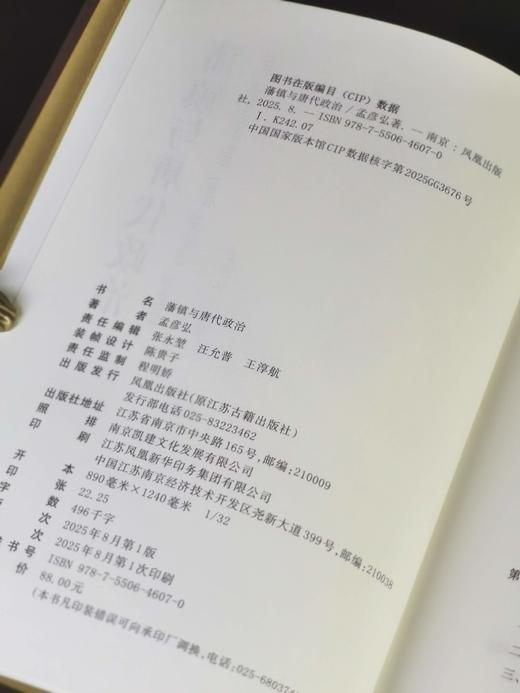 图书在版编目（CIP）数据
藩镇与唐代政治 / 孟彦弘著. — 南京 : 凤凰出版
社, 2025. 8. — ISBN 978-7-5506-4607-0
I. K242.07
中国国家版本馆CIP数据核字第2025GG3676号
书 名 藩镇与唐代政治
著 者 孟彦弘
责任编辑 张永堃 汪允普 王淳航
装帧设计 陈贵子
责任监制 程明娇
出版发行 凤凰出版社(原江苏古籍出版社)
发行部电话025-83223462
出版社地址 江苏省南京市中央路165号,邮编:210009
照 排 南京凯建文化发展有限公司
印 刷 江苏凤凰新华印务集团有限公司
中国江苏南京经济技术开发区尧新大道399号,邮编:210038
开 本 890毫米×1240毫米 1/32
印 张 22.25
字 数 496千字
版 次 2025年8月第1版
次 2025年8月第1次印刷
书号 ISBN 978-7-5506-4607-0
价 88.00元
(本书凡印装错误可向承印厂调换,电话:025-680374
第
一
二
三、